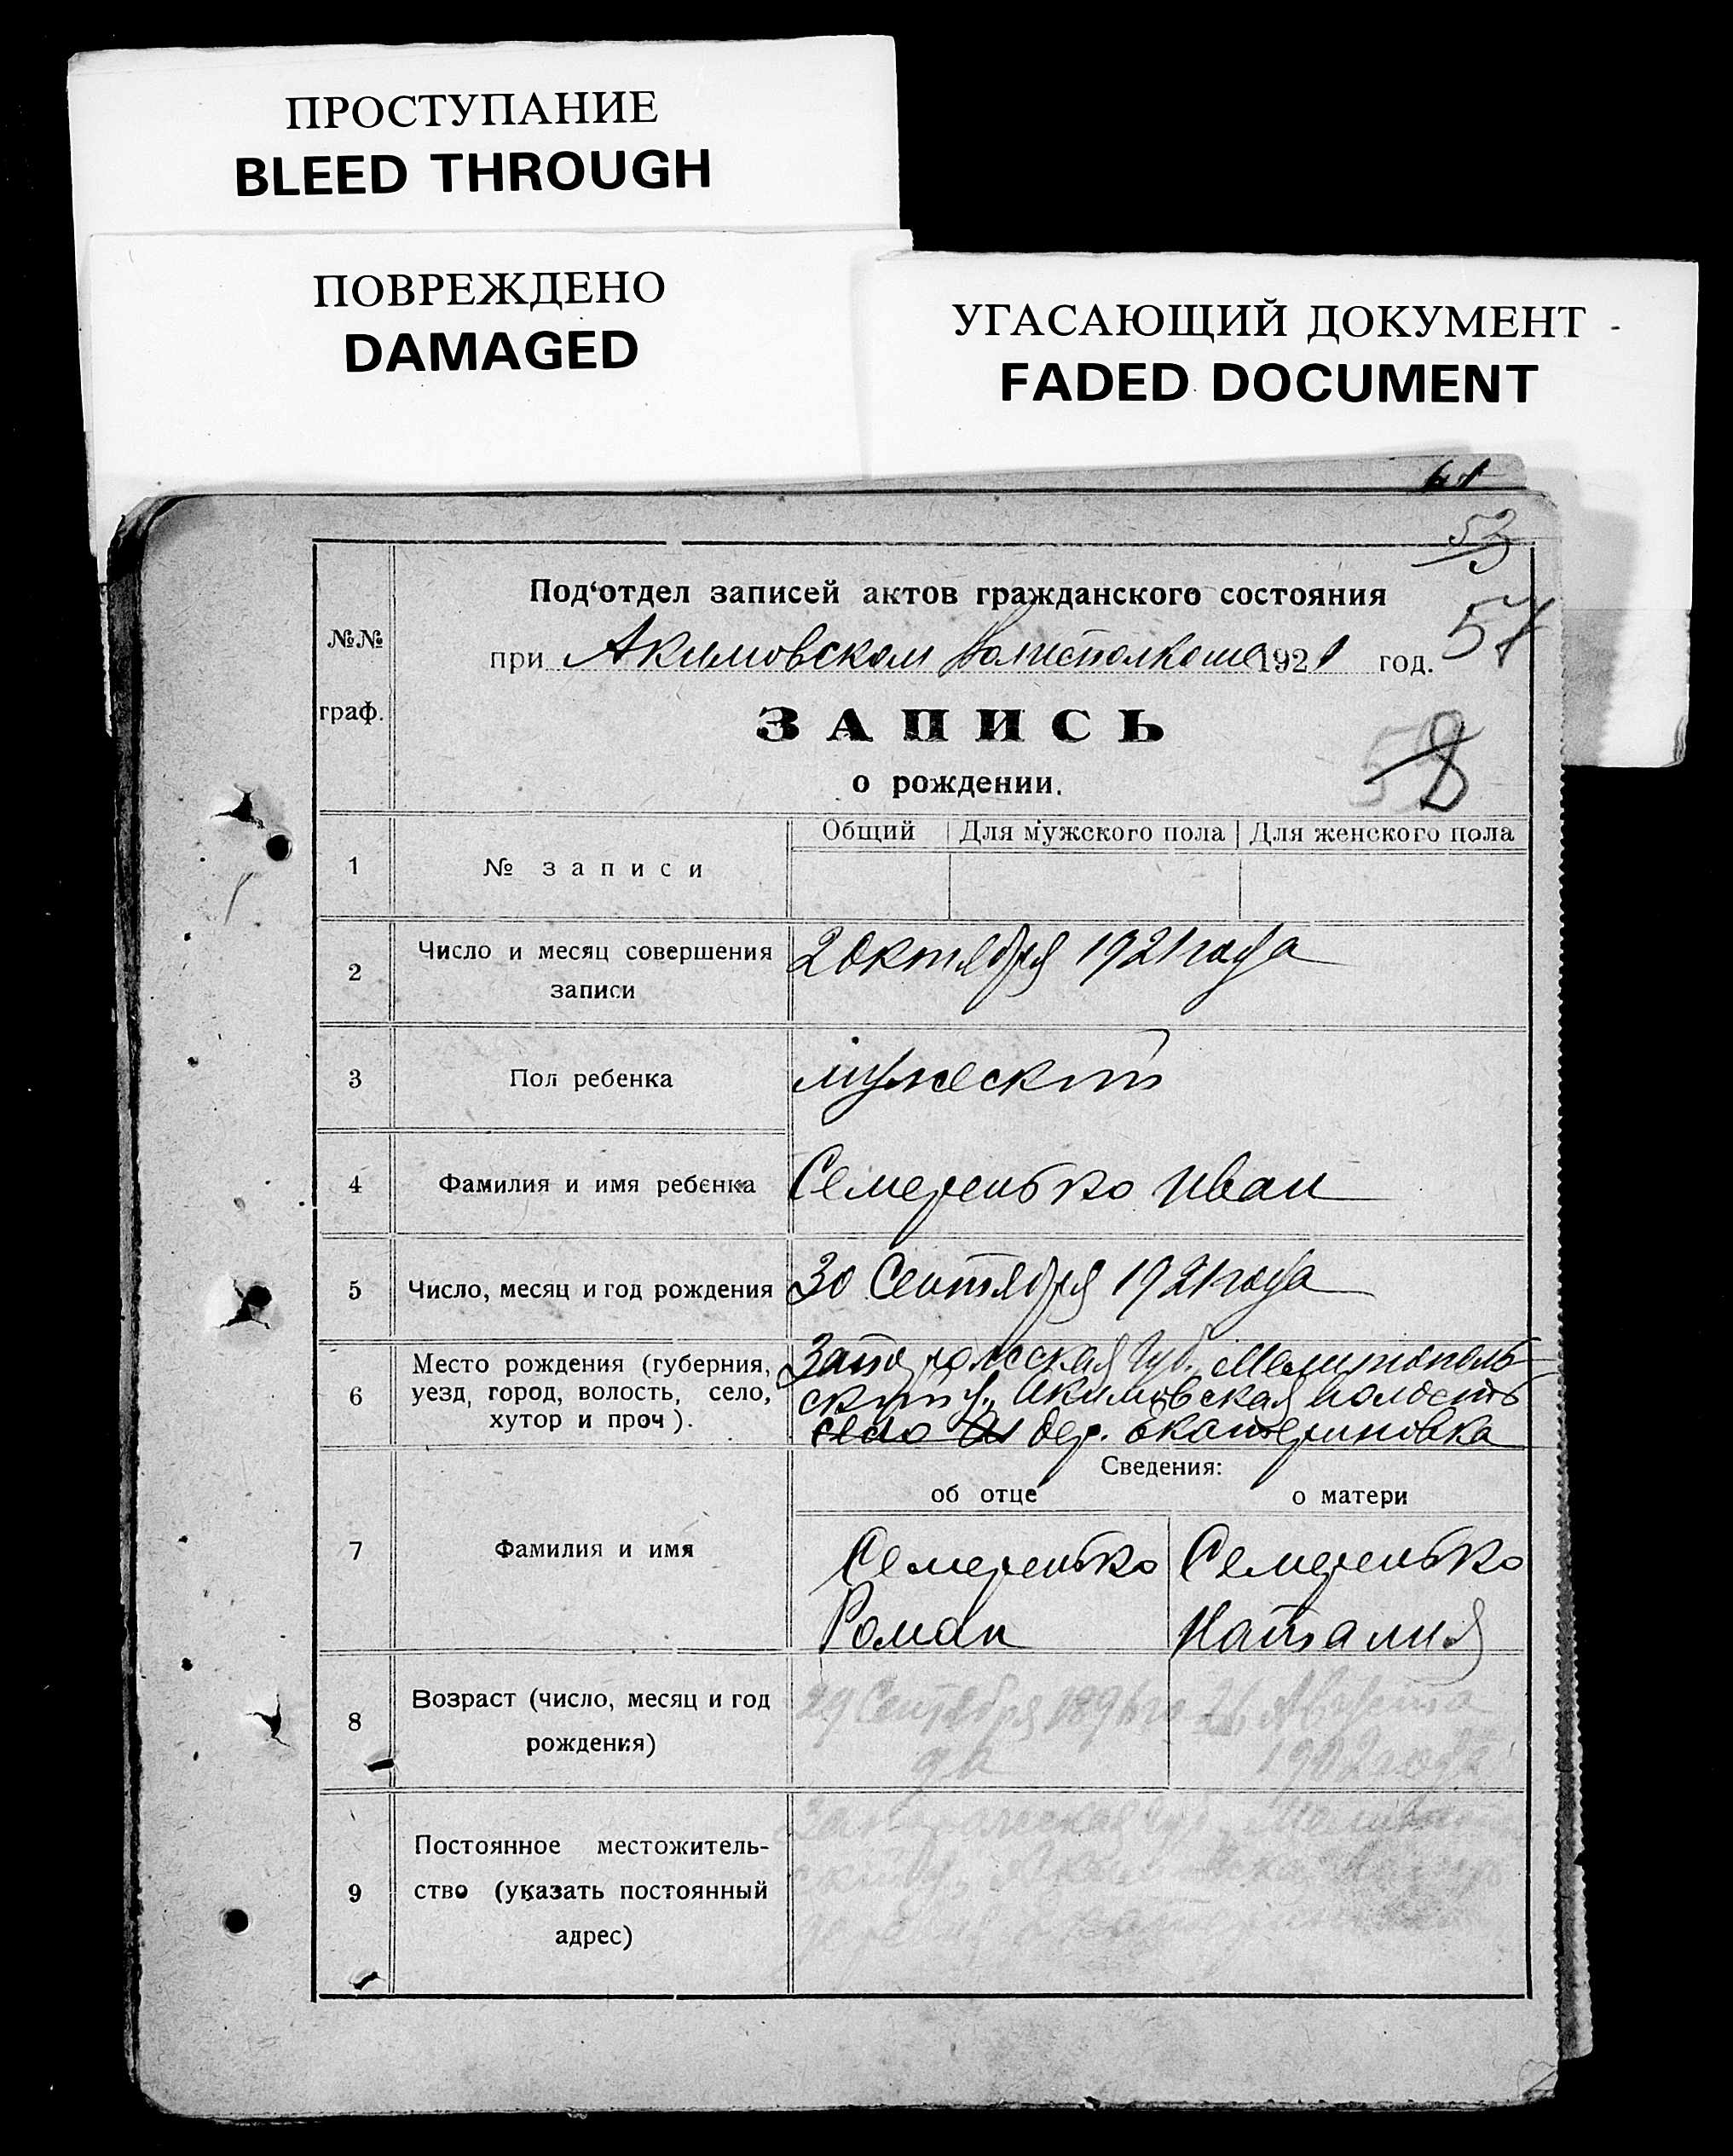 ПРОСТУПАНИЕ
BLEED THROUGH
ПОВРЕЖДЕНО
DAMAGED
УГАСАЮЩИЙ ДОКУМЕНТ
FADED DOCUMENT
53
57
8
№№ граф.
Под‘отдел записей актов гражданского состояния
при Акимовском Волисполкоме 1921 год.
ЗАПИСЬ
о рождении.
Общий Для мужского пола Для женского пола
1 № записи
2 Число и месяц совершения записи
2 Октября 1921 года
3 Пол ребенка
мужеский
4 Фамилия и имя ребенка
Семеренько Иван
5 Число, месяц и год рождения
30 Сентября 1921 года
6 Место рождения (губерния,
уезд, город, волость, село,
хутор и проч).
Запорожская Губ. Мелитополь
ский у., Акимовская волость
село дер. Екатериновка
Сведения:
об отце о матери
7 Фамилия и имя
Семеренько Семеренько
Роман Наталия
8 Возраст (число, месяц и год
рождения)
29 Сентября Августа
да 1902 года
9 Постоянное местожитель-
ство (указать постоянный
адрес)
губ.